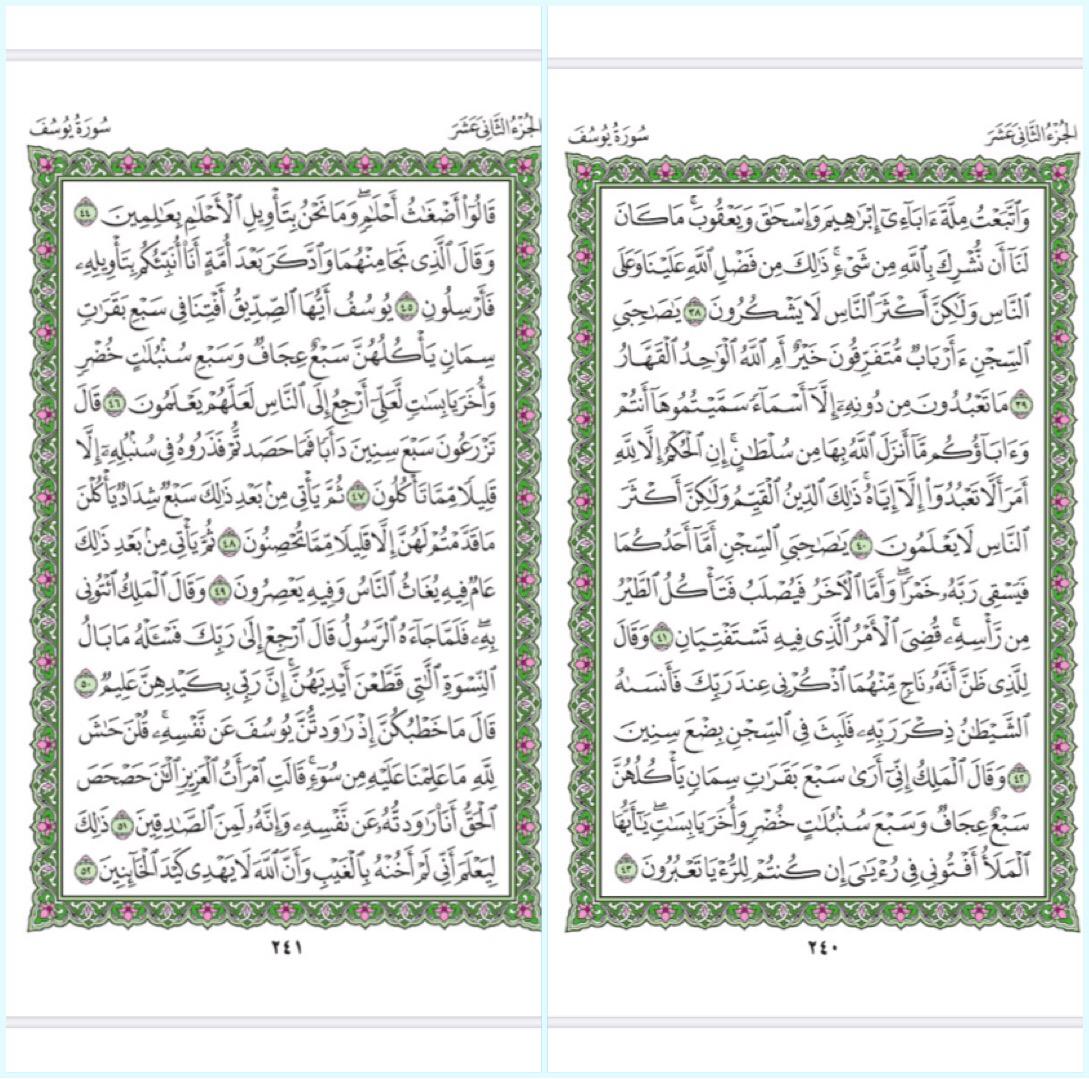 الجُزْءُ الثَّانِي عَشَرَ
سُورَةُ يُوسُفَ
وَٱتَّبَعْتُ مِلَّةَ ءَابَآءِىٓ إِبْرَٰهِيمَ وَإِسْحَٰقَ وَيَعْقُوبَۚ مَا كَانَ
لَنَآ أَن نُّشْرِكَ بِٱللَّهِ مِن شَىْءٍۚ ذَٰلِكَ مِن فَضْلِ ٱللَّهِ عَلَيْنَا وَعَلَى
ٱلنَّاسِ وَلَٰكِنَّ أَكْثَرَ ٱلنَّاسِ لَا يَشْكُرُونَ ٣٨ يَٰصَٰحِبَىِ
ٱلسِّجْنِ ءَأَرْبَابٌ مُّتَفَرِّقُونَ خَيْرٌ أَمِ ٱللَّهُ ٱلْوَٰحِدُ ٱلْقَهَّارُ
٣٩ مَا تَعْبُدُونَ مِن دُونِهِۦٓ إِلَّآ أَسْمَآءً سَمَّيْتُمُوهَآ أَنتُمْ
وَءَابَآؤُكُم مَّآ أَنزَلَ ٱللَّهُ بِهَا مِن سُلْطَٰنٍۚ إِنِ ٱلْحُكْمُ إِلَّا لِلَّهِ
أَمَرَ أَلَّا تَعْبُدُوٓاْ إِلَّآ إِيَّاهُۚ ذَٰلِكَ ٱلدِّينُ ٱلْقَيِّمُ وَلَٰكِنَّ أَكْثَرَ
ٱلنَّاسِ لَا يَعْلَمُونَ ٤٠ يَٰصَٰحِبَىِ ٱلسِّجْنِ أَمَّآ أَحَدُكُمَا
فَيَسْقِى رَبَّهُۥ خَمْرًاۖ وَأَمَّا ٱلْأٓخَرُ فَيُصْلَبُ فَتَأْكُلُ ٱلطَّيْرُ
مِن رَّأْسِهِۦۚ قُضِىَ ٱلْأَمْرُ ٱلَّذِى فِيهِ تَسْتَفْتِيَانِ ٤١ وَقَالَ
لِلَّذِى ظَنَّ أَنَّهُۥ نَاجٍ مِّنْهُمَا ٱذْكُرْنِى عِندَ رَبِّكَ فَأَنسَىٰهُ
ٱلشَّيْطَٰنُ ذِكْرَ رَبِّهِۦ فَلَبِثَ فِى ٱلسِّجْنِ بِضْعَ سِنِينَ
٤٢ وَقَالَ ٱلْمَلِكُ إِنِّىٓ أَرَىٰ سَبْعَ بَقَرَٰتٍ سِمَانٍ يَأْكُلُهُنَّ
سَبْعٌ عِجَافٌ وَسَبْعَ سُنۢبُلَٰتٍ خُضْرٍ وَأُخَرَ يَابِسَٰتٍۖ يَٰٓأَيُّهَا
ٱلْمَلَأُ أَفْتُونِى فِى رُءْيَٰىَ إِن كُنتُمْ لِلرُّءْيَا تَعْبُرُونَ ٤٣
٢٤٠
الجُزْءُ الثَّانِي عَشَرَ
سُورَةُ يُوسُفَ
قَالُوٓاْ أَضْغَٰثُ أَحْلَٰمٍۖ وَمَا نَحْنُ بِتَأْوِيلِ ٱلْأَحْلَٰمِ بِعَٰلِمِينَ ٤٤
وَقَالَ ٱلَّذِى نَجَا مِنْهُمَا وَٱدَّكَرَ بَعْدَ أُمَّةٍ أَنَا۠ أُنَبِّئُكُم بِتَأْوِيلِهِۦ
فَأَرْسِلُونِ ٤٥ يُوسُفُ أَيُّهَا ٱلصِّدِّيقُ أَفْتِنَا فِى سَبْعِ بَقَرَٰتٍ
سِمَانٍ يَأْكُلُهُنَّ سَبْعٌ عِجَافٌ وَسَبْعِ سُنۢبُلَٰتٍ خُضْرٍ
وَأُخَرَ يَابِسَٰتٍ لَّعَلِّىٓ أَرْجِعُ إِلَى ٱلنَّاسِ لَعَلَّهُمْ يَعْلَمُونَ ٤٦ قَالَ
تَزْرَعُونَ سَبْعَ سِنِينَ دَأَبًا فَمَا حَصَدتُّمْ فَذَرُوهُ فِى سُنۢبُلِهِۦٓ إِلَّا
قَلِيلًا مِّمَّا تَأْكُلُونَ ٤٧ ثُمَّ يَأْتِى مِنۢ بَعْدِ ذَٰلِكَ سَبْعٌ شِدَادٌ يَأْكُلْنَ
مَا قَدَّمْتُمْ لَهُنَّ إِلَّا قَلِيلًا مِّمَّا تُحْصِنُونَ ٤٨ ثُمَّ يَأْتِى مِنۢ بَعْدِ ذَٰلِكَ
عَامٌ فِيهِ يُغَاثُ ٱلنَّاسُ وَفِيهِ يَعْصِرُونَ ٤٩ وَقَالَ ٱلْمَلِكُ ٱئْتُونِى
بِهِۦۖ فَلَمَّا جَآءَهُ ٱلرَّسُولُ قَالَ ٱرْجِعْ إِلَىٰ رَبِّكَ فَسْـَٔلْهُ مَا بَالُ
ٱلنِّسْوَةِ ٱلَّٰتِى قَطَّعْنَ أَيْدِيَهُنَّۚ إِنَّ رَبِّى بِكَيْدِهِنَّ عَلِيمٌ ٥٠
قَالَ مَا خَطْبُكُنَّ إِذْ رَٰوَدتُّنَّ يُوسُفَ عَن نَّفْسِهِۦۚ قُلْنَ حَٰشَ
لِلَّهِ مَا عَلِمْنَا عَلَيْهِ مِن سُوٓءٍۚ قَالَتِ ٱمْرَأَتُ ٱلْعَزِيزِ ٱلْـَٰٔنَ حَصْحَصَ
ٱلْحَقُّ أَنَا۠ رَٰوَدتُّهُۥ عَن نَّفْسِهِۦ وَإِنَّهُۥ لَمِنَ ٱلصَّٰدِقِينَ ٥١ ذَٰلِكَ
لِيَعْلَمَ أَنِّى لَمْ أَخُنْهُ بِٱلْغَيْبِ وَأَنَّ ٱللَّهَ لَا يَهْدِى كَيْدَ ٱلْخَآئِنِينَ ٥٢
٢٤١